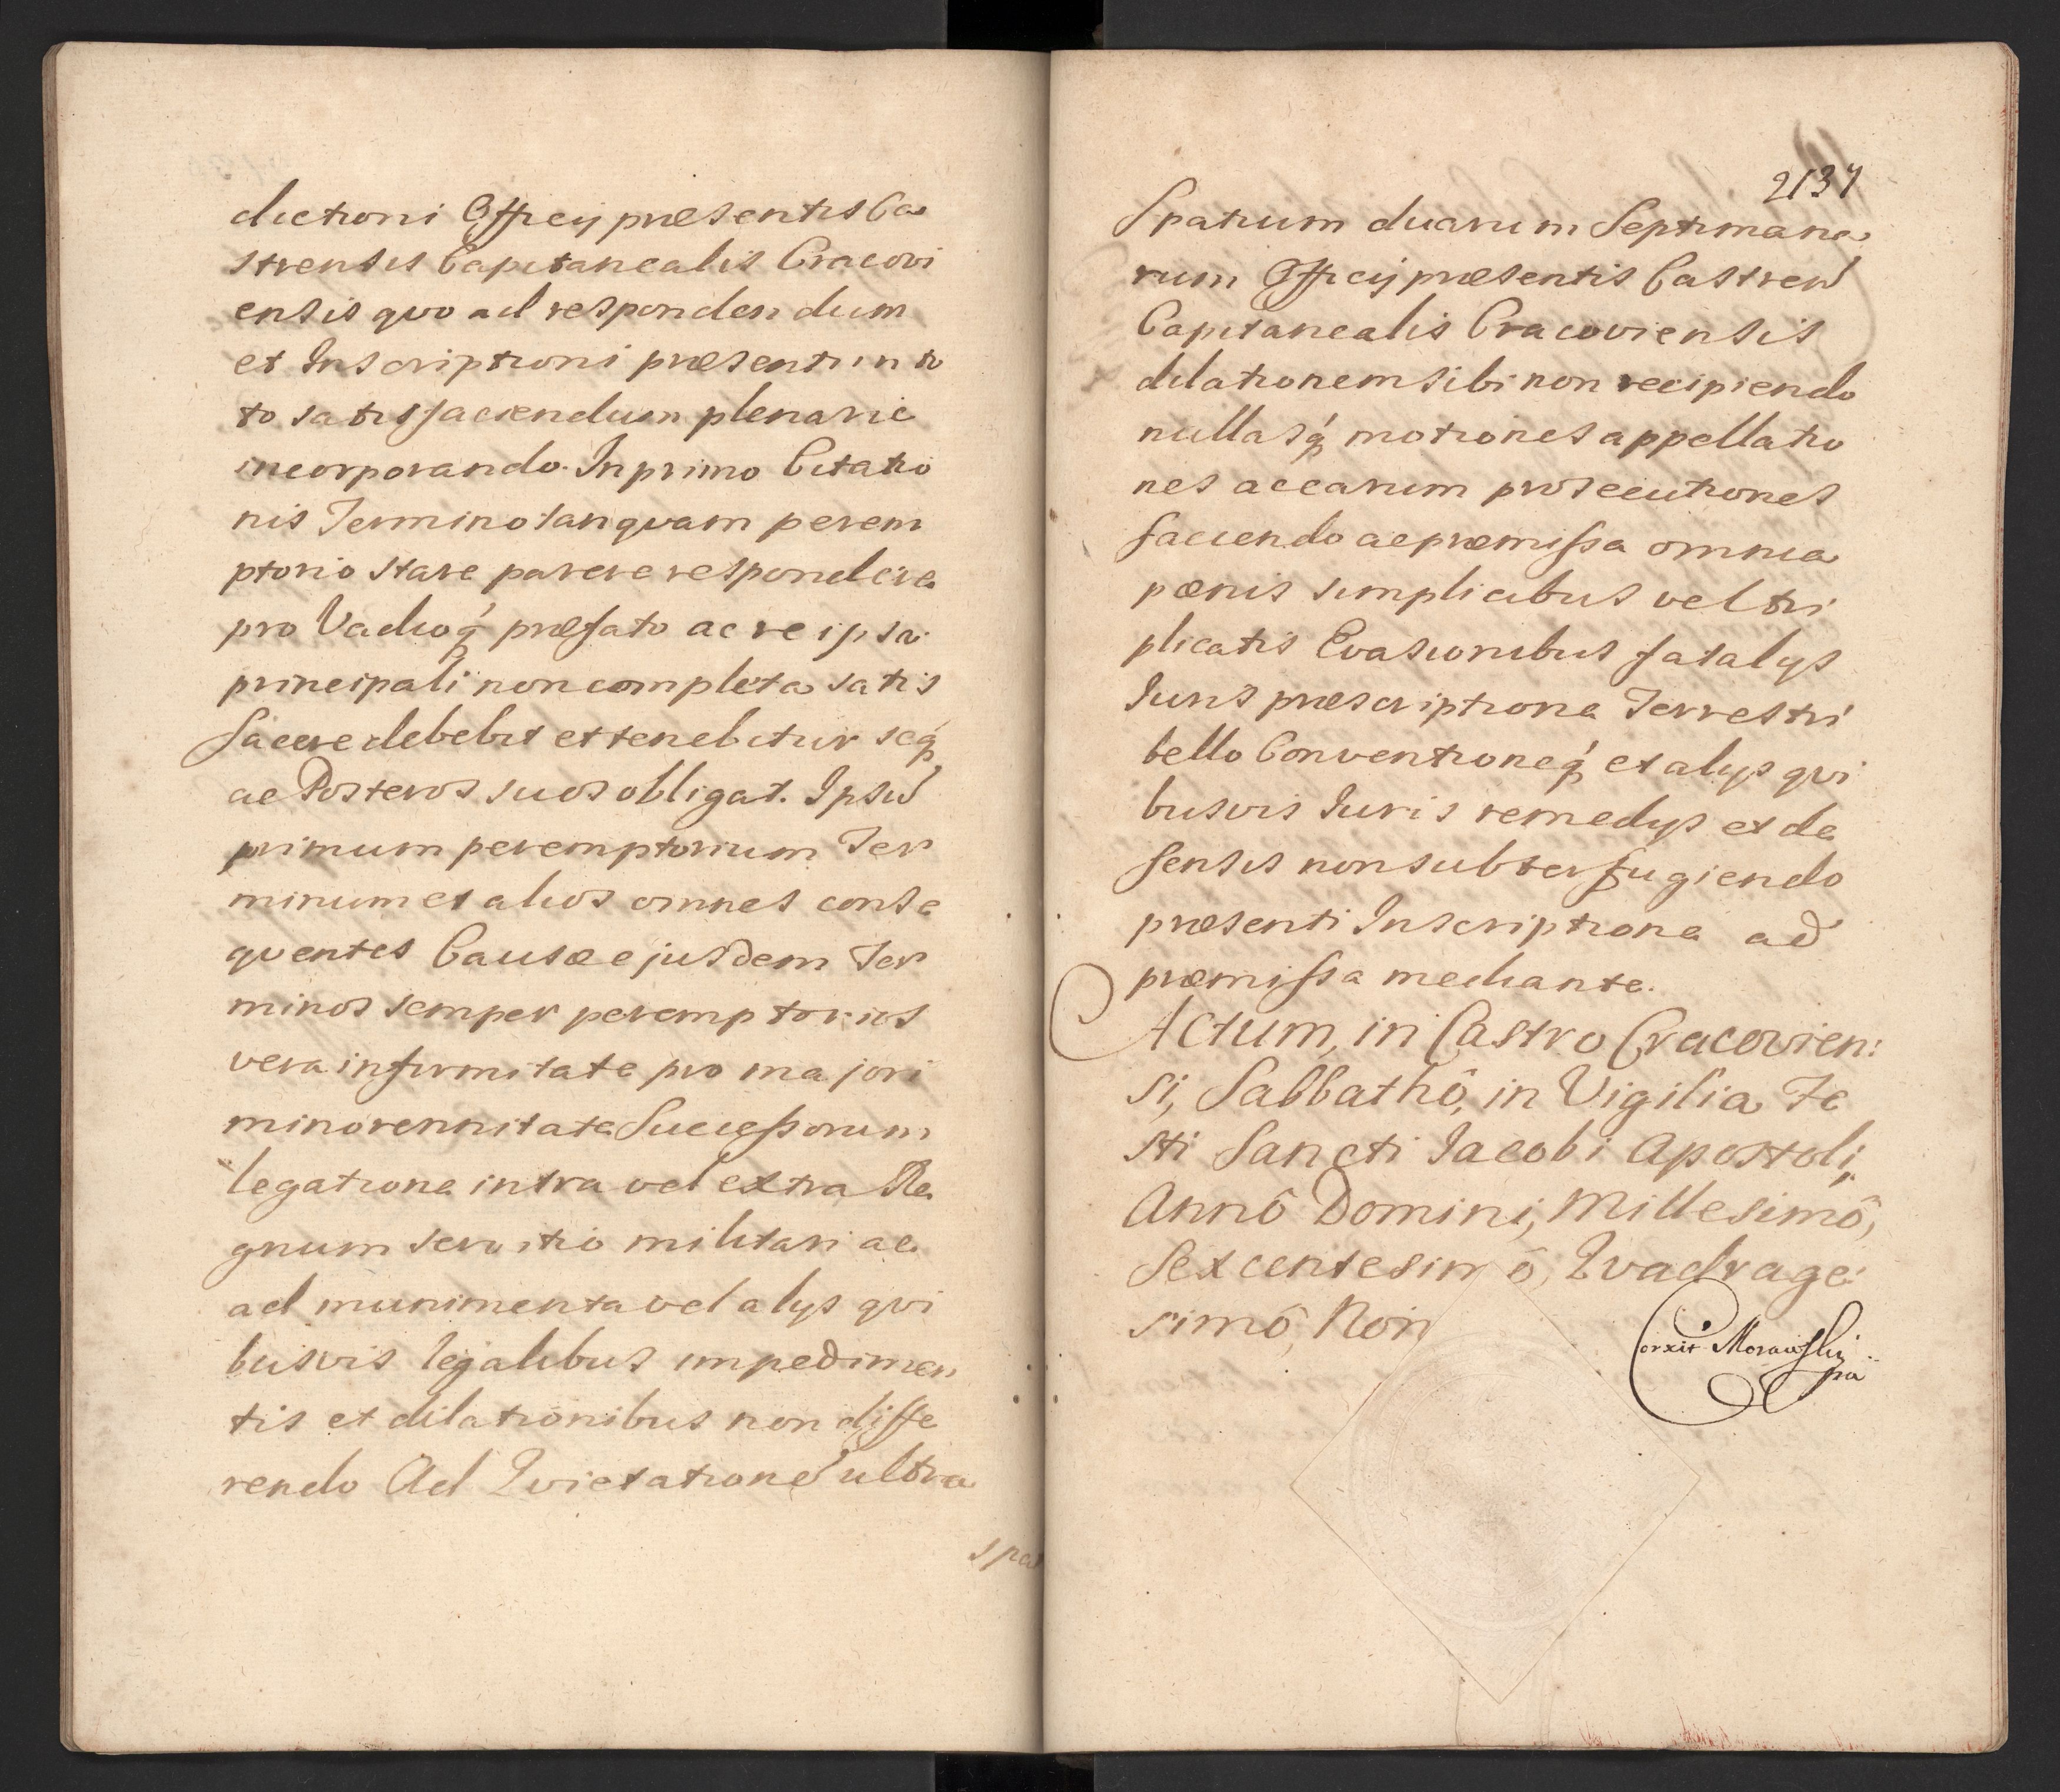 dictioni Officij præsentis Ca
strensis Capitanealis Cracovi
ensis quo ad respondendum
et Inscriptioni præsenti in to
to satisfaciendum plenarie
incorporando. In primo Citatio
nis Termino tanquam perem
ptorio stare parere respondere
pro Vadioq́ præfato ac re ipsa
principali non completa satis
facere debebit et tenebitur seq́
ac Posteros suos obligat. Ipsu͂
primum peremptorium Ter
minum et alios omnes conse
quentes Causæ ejusdem Ter
minos semper peremptorios
vera infirmitate pro majori
minorennitate Successorum
legatione intra vel extra Re
gnum servitio militari ac
ad munimenta vel alys qui
busvis legalibus impedimen
tis et dilationibus non diffe
rendo Ad Quietatione͂ ultra
spa
2137
Spatium duarum Septimana
rum Officij præsentis Castren͂
Capitanealis Cracoviensis
dilationem sibi non recipiendo
nullasq́ motiones appellatio
nes ac earum prosecutiones
faciendo ac præmissa omnia
pœnis simplicibus vel tri
plicatis Evasionibus fatalys
Iuris præscriptione Terrestri
bello Conventioneq́ et alys qui
busvis Iuris remedys et de
fensis non subterfugiendo
præsenti Inscriptione ad
præmissa mediante.
Actum, in Castro Cracovien:
si, Sabbathô, in Vigilia Fe
sti Sancti Iacobi Apostoli,
Annô Domini, Millesimô,
Sexcentesimô, Quadrage:
simô, Non
Corxit Morawski
pa